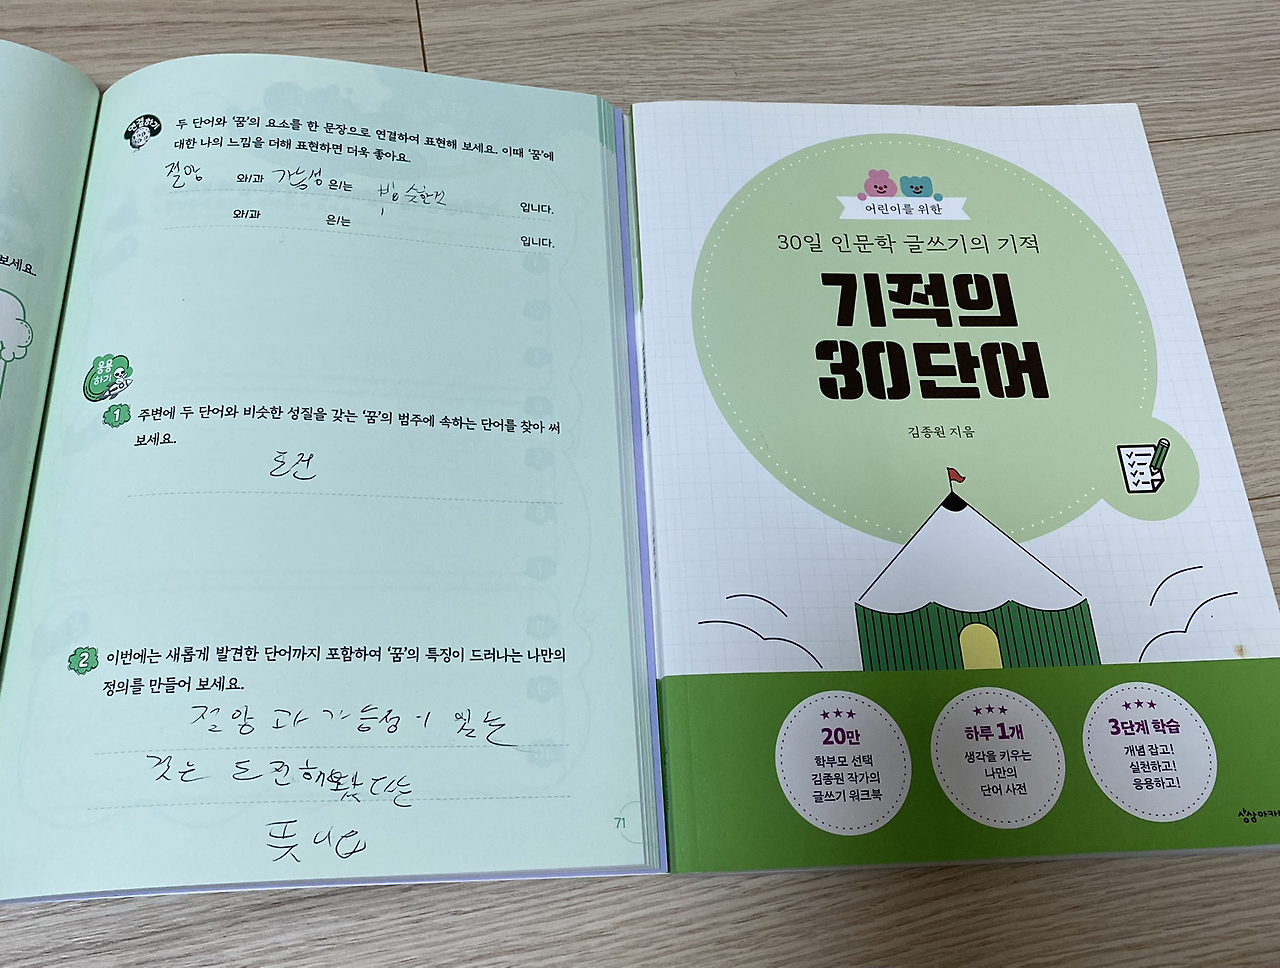 보세요.
연결하기
두 단어와 '꿈'의 요소를 한 문장으로 연결하여 표현해 보세요. 이때 '꿈'에
대한 나의 느낌을 더해 표현하면 더욱 좋아요.
절망 와/과 가능성 은/는 비슷한것 입니다.
와/과 은/는 입니다.
응용
하기
1 주변에 두 단어와 비슷한 성질을 갖는 '꿈'의 범주에 속하는 단어를 찾아 써
보세요.
도전
2 이번에는 새롭게 발견한 단어까지 포함하여 '꿈'의 특징이 드러나는 나만의
정의를 만들어 보세요.
절망과 가능성이 있는
것은 도전해봤다는
뜻이다
71
어린이를 위한
30일 인문학 글쓰기의 기적
기적의
30단어
김종원 지음
20만
학부모 선택
김종원 작가의
글쓰기 워크북
하루 1개
생각을 키우는
나만의
단어 사전
3단계 학습
개념 잡고!
실천하고!
응용하고!
상상아카